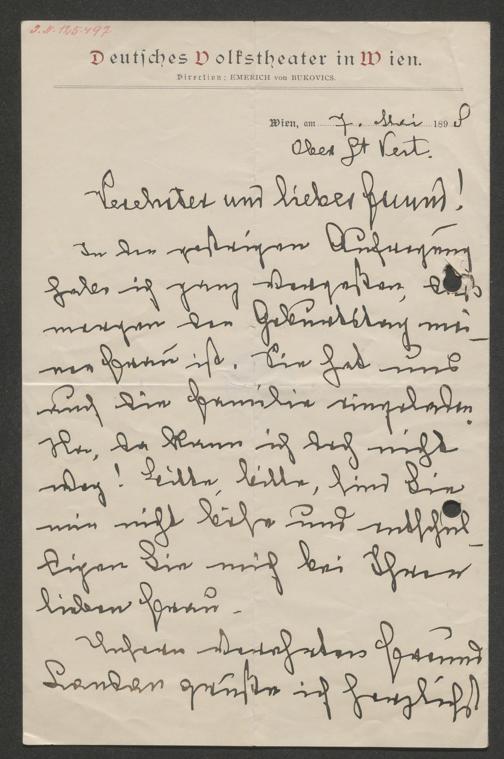 J.N. 125.497
Deutsches Volkstheater in Wien.
Direction: EMERICH von BUKOVICS.
Wien, am 7. Mai 1898
Ober St Veit.
Verehrter und lieber Freund!
In der gestrigen Aufregung
habe ich ganz vergessen, daß
morgen der Geburtstag mei-
ner Frau ist. Sie hat uns
und die Familie eingeladen.
Na, da kann ich doch nicht
weg! Bitte, bitte, sind Sie
mir nicht böse und entschul-
digen Sie mich bei Ihrer
lieben Frau.
Unsern verehrten Freund
Landau grüße ich herzlichst